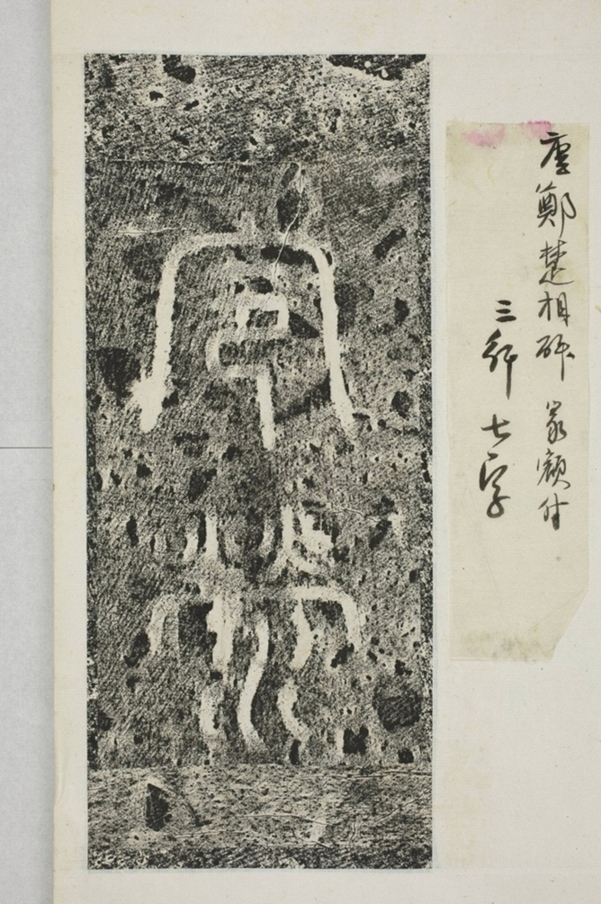 唐鄭楚相碑 篆額付
三行七字
滎